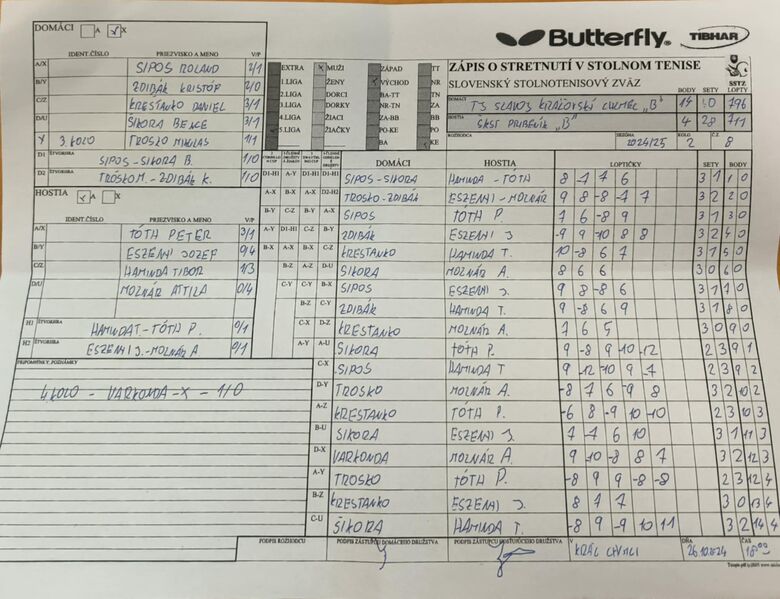 DOMÁCI A X
IDENT.ČÍSLO PRIEZVISKO A MENO V/P
A/X SIPOS ROLAND 2/1
B/Y ZDIBÁK KRISTÓF 2/0
C/Z KRESTANKO DANIEL 3/1
D/U ŠIKORA BENCE 3/1
X 3. KOLO TROSKO MIKLAS 1/1
D1 ŠTVORHRA SIPOS-SIKORA B. 1/0
D2 TRÓSKO M. - ZDIBÁK K. 1/0
HOSTIA A X
IDENT.ČÍSLO PRIEZVISKO A MENO V/P
A/X TÓTH PETER 3/1
B/Y ESZENYI JOZEF 0/4
C/Z HAMINDA TIBOR 1/3
D/U MOLNÁR ATTILA 0/4
H1 ŠTVORHRA HAMINDA T - TÓTH P. 0/1
H2 ŠTVORHRA ESZENYI J. - MOLNÁR A 0/1
PRIPOMIENKY, POZNÁMKY
4 KOLO - VARKONDA - X - 1/0
Butterfly TIBHAR
EXTRA MUŽI ZÁPAD TT
1.LIGA ŽENY VÝCHOD NR
2.LIGA DORCI BA-TT TN
3.LIGA DORKY NR-TN ZA
4.LIGA ŽIACI ZA-BB BB
5.LIGA ŽIAČKY PO-KE PO
BA KE
ZÁPIS O STRETNUTÍ V STOLNOM TENISE
SLOVENSKÝ STOLNOTENISOVÝ ZVÄZ
SSTZ
BODY SETY LOPTY
DOMÁCI TJ SLAVOJ KRÁĽOVSKÝ CHLMEC "B" 14 50 796
HOSTIA ŠKST PRIBENÍK "B" 4 28 711
ROZHODCA SEZÓNA 2024/25 KOLO 2 Č.Z 8
DOMÁCI HOSTIA LOPTIČKY SETY BODY
D1-H1 SIPOS-SIKORA HAMINDA - TÓTH 8 -7 7 6 3 1 1 0
D2-H2 TROSKO-ZDIBÁK ESZENYI-MOLNÁR 9 8 -8 -7 7 3 2 2 0
A-X SIPOS TÓTH P. 7 6 -8 9 3 1 3 0
B-Y ZDIBÁK ESZENYI J. -9 9 -10 8 8 3 2 4 0
C-Z KRESTANKO HAMINDA T. 10 -8 6 7 3 1 5 0
D-U ŠIKORA MOLNÁR A. 8 6 6 3 0 6 0
A-Y SIPOS ESZENYI J. 9 -8 8 6 3 1 7 0
B-Z ZDIBÁK HAMINDA T. 9 -8 6 9 3 1 8 0
C-U KRESTANKO MOLNÁR A. 7 6 5 3 0 9 0
D-X ŠIKORA TÓTH P. 9 -8 9 -10 -12 2 3 9 1
SIPOS HAMINDA T 9 -12 -10 9 -7 2 3 9 2
TROSKO MOLNÁR A. -8 7 6 -8 9 3 2 10 2
KRESTANKO TÓTH P. -6 8 -9 10 -10 2 3 10 3
B-U ŠIKORA ESZENYI J. 7 -7 6 10 3 1 11 3
D-X VARKONDA MOLNÁR A. 9 -10 -8 8 7 3 2 12 3
A-Y TROSKO TÓTH P. -8 9 9 -8 -8 2 3 12 4
B-Z KRESTANKO ESZENYI J. 8 7 7 3 0 13 4
C-U ŠIKORA HAMINDA T. -8 9 -9 10 11 3 2 14 4
PODPIS ROZHODCU PODPIS ZÁSTUPCU DOMÁCEHO DRUŽSTVA PODPIS ZÁSTUPCU HOSŤUJÚCEHO DRUŽSTVA V KRÁĽ CHLMCI DŇA 26.10.2024 ČAS 18:00